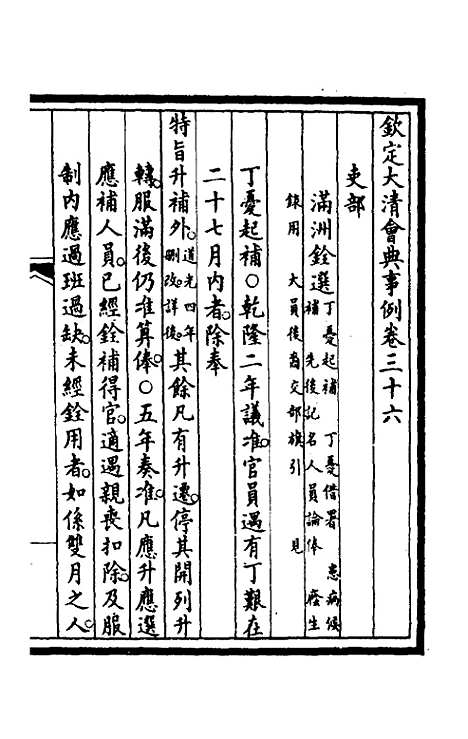 欽定大清會典事例卷三十六
吏部
滿洲銓選丁憂起補　丁憂借署　患病候
補　先後記名人員論俸　廕生
錄用　大員後裔交部旗引　見
丁憂起補○乾隆二年議准官員遇有丁艱在
二十七月內者除奉
特旨升補外道光四年
刪改詳後其餘凡有升遷停其開列升
轉服滿後仍准算俸○五年奏准凡應升應選
應補人員已經銓補得官適遇親喪扣除及服
制內應過班過缺未經銓用者如係雙月之人